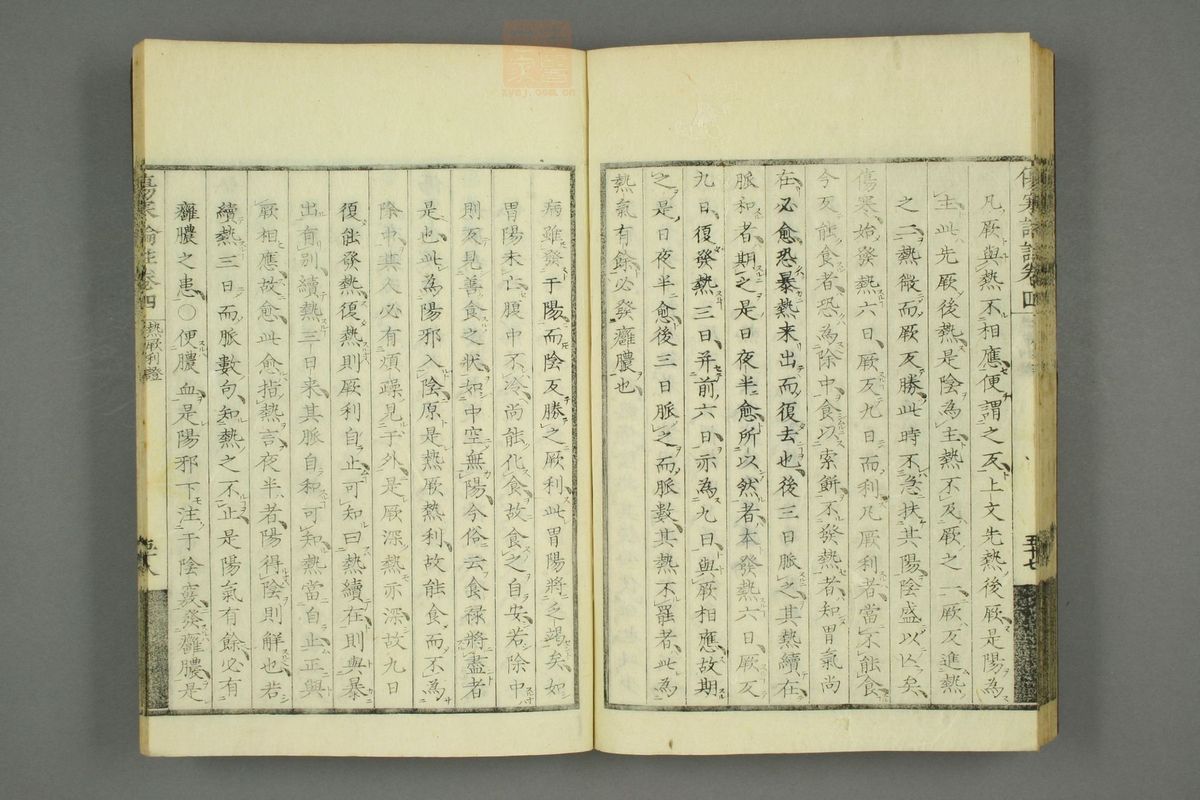 凡厥與熱不相應便謂之反上文先熱後厥是陽為
主此先厥後熱是陰為主熱不及厥之一厥反進熱
之二熱微而厥反勝此時不急扶其陽陰盛以亾矣
傷寒始發熱六日厥反九日而利凡厥利者當不能食
今反能食者恐為除中食以索餅不發熱者知胃氣尚
在必愈恐暴熱来出而復去也後三日脈之其熱續在
脈和者期之是日夜半愈所以然者本發熱六日厥反
九日復發熱三日并前六日亦為九日與厥相應故期
之是日夜半愈後三日脈之而脈數其熱不罷者此為
熱氣有餘必發癰膿也
病雖發于陽而陰反勝之厥利此胃陽將乏竭矣如
胃陽未亡腹中不冷尚能化食故食之自安若除中
則反見善食之狀如中空無陽今俗云食祿將盡者
是也此為陽邪入陰原是熱厥熱利故能食而不為
除中其人必有煩躁見于外是厥深熱亦深故九日
復能發熱復熱則厥利自止可知曰熱續在則與暴
出有别續熱三日来其脈自和可知熱當自止正與
厥相應故愈此愈指熱言夜半者陽得陰則解也若
續熱三日而脈數句知熱之不止是陽氣有餘必有
癰膿之患○便膿血是陽邪下注于陰竅發癰膿是
傷寒論註卷四
熱厥利證
zycj.com.cn